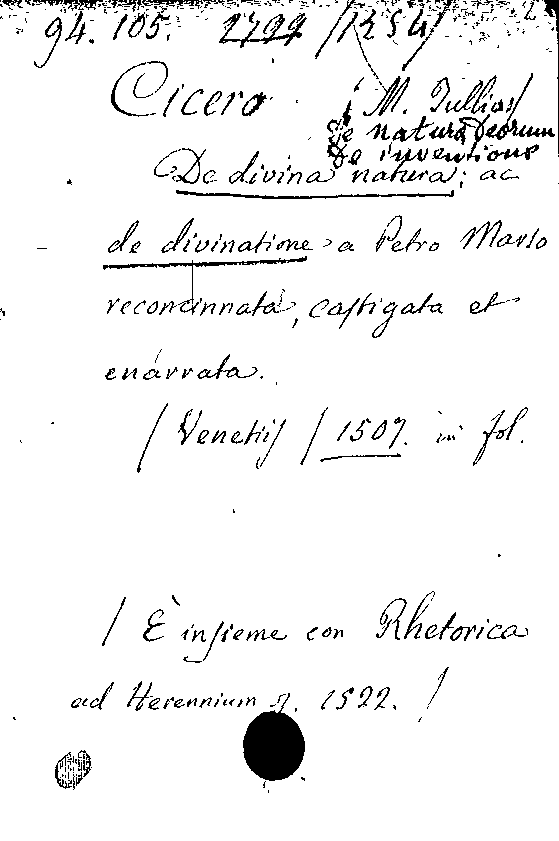 94. 105. 2799 /1254/
Cicero / M. Tullius/
de natura Deorum
De inventione
De divina natura; ac
de divinatione a Petro Marso
reconcinnata, castigata et
enárrata.
/ Venetiis / 1507. in fol.
/ È insieme con Rhetorica
ad Herennium 1522. /